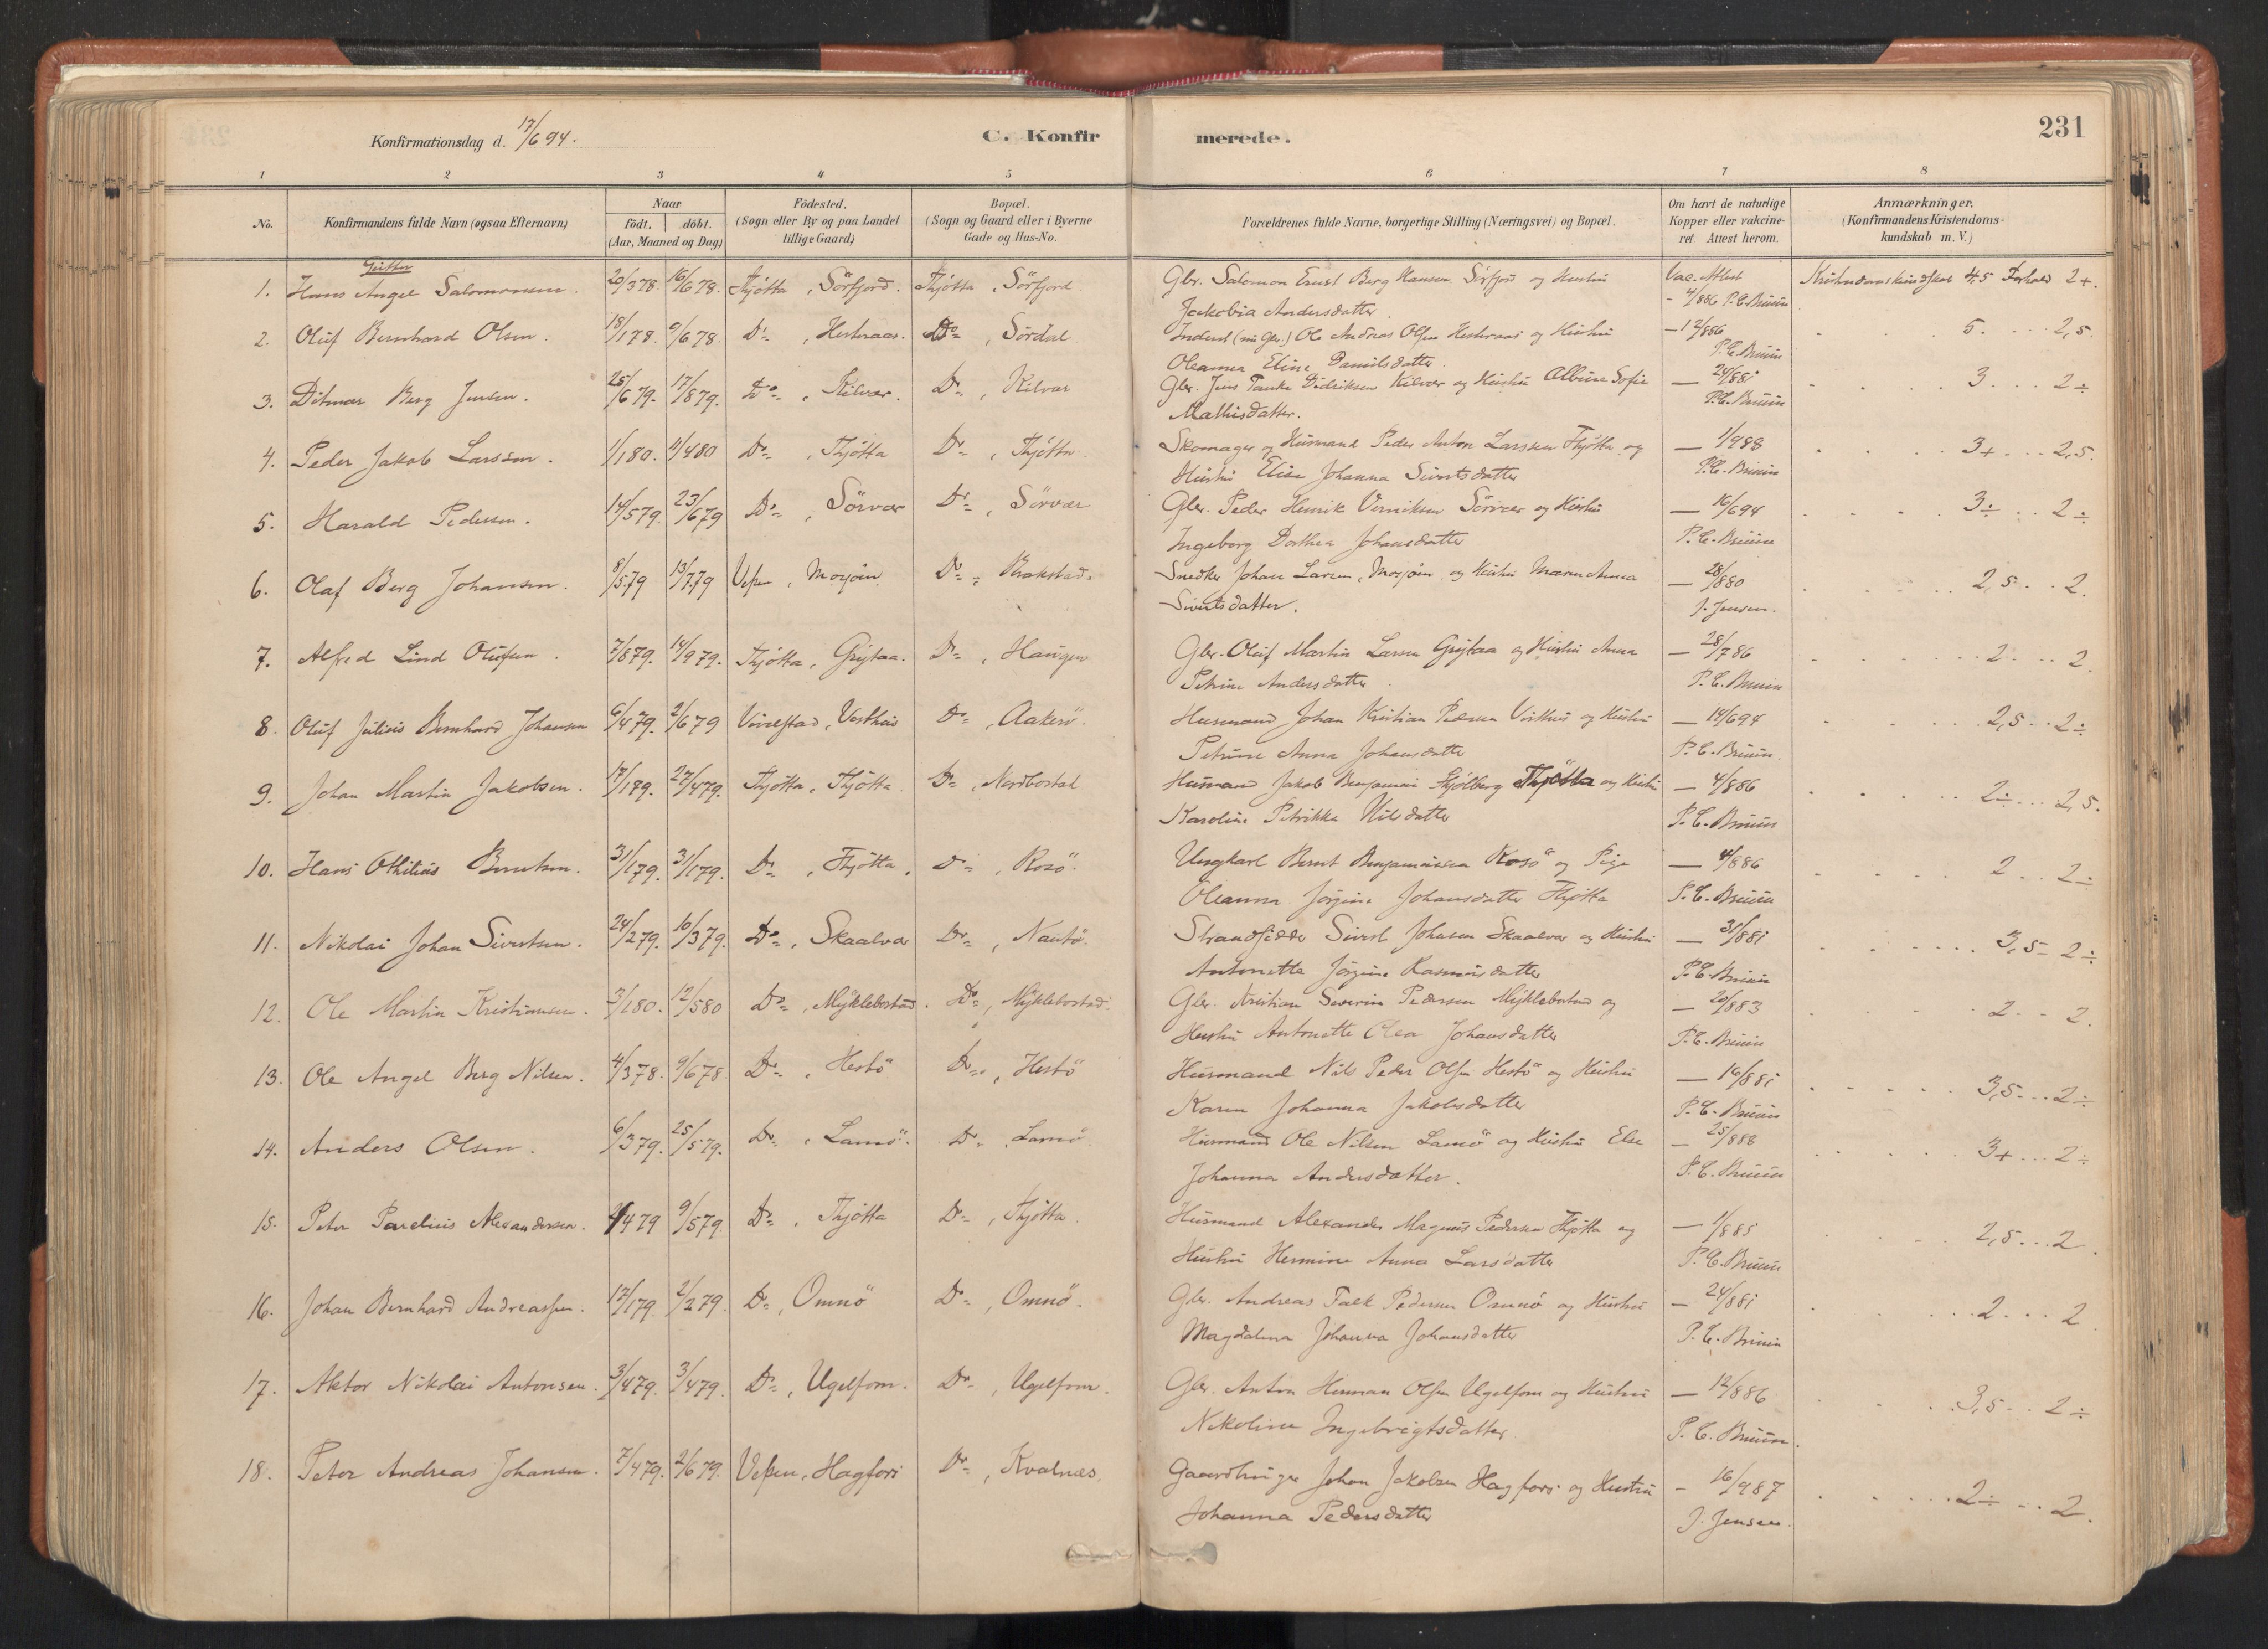 Konfirmationsdag d. 17/6 94.
C. Konfirmerede.
231
1 2 3 4 5 6 7 8
No.
Konfirmandens fulde Navn (ogsaa Efternavn)
Naar
födt. döbt.
(Aar, Maaned og Dag)
Födested.
(Sogn eller By og paa Landet
tillige Gaard)
Bopæl.
(Sogn og Gaard eller i Byerne
Gade og Hus-No.
Forældrenes fulde Navne, borgerlige Stilling (Næringsvei) og Bopæl.
Om havt de naturlige
Kopper eller vakcine-
ret Attest herom.
Anmærkninger.
(Konfirmandens Kristendoms-
kundskab m. V.)
1. Hans Angel Salomonsen. 20/3 78. 16/6 78. Thjötta, Sörfjord. Thjötta, Sörfjord. Gbr. Salomon Ernst Berg Hansen Sörfjord og Hustru Vac. Attest Kristendomskundskab 4,5 Forhold 2+.
Jakobia Andersdatter. - 4/8 86 P.C. Bruun
2. Oluf Bernhard Olsen. 18/1 78. 9/6 78. Do, Hestnaas. Do, Sördal Inderst (nu Gbr.) Ole Andreas Olsen Hestnaas og Hustru — 12/8 86 5. 2,5.
Oleanna Eline Danielsdatter. P.C. Bruun
3. Ditmar Berg Jensen. 25/6 79. 17/8 79. Do, Kilvær. Do, Kilvær Gbr. Jens Tanke Didriksen Kilvær og Hustru Albine Sofie — 24/8 81 3 2÷
Mathisdatter. P.C. Bruun
4. Peder Jakob Larssen. 1/1 80. 11/4 80 Do, Thjötta Do, Thjötta Skomager og Husmand Peder Anton Larssen Thjötta og — 1/9 88 3+ 2,5.
Hustru Elise Johanna Sivertsdatter P.C. Bruun
5. Harald Pedersen. 14/5 79. 23/6 79 Do, Sörvær Do, Sörvær Gbr. Peder Henrik Verniksen Sörvær og Hustru — 16/6 94 3÷ 2÷
Ingeborg Dorthea Johansdatter P.C. Bruun
6. Olaf Berg Johansen. 8/5 79 13/7 79 Vefsen, Mosjöen Do, Brakstad. Snedker Johan Larsen, Mosjöen, og Hustru Maren Anna — 28/8 80 2,5 2.
Sivertsdatter. J. Jensen.
7. Alfred Lind Olufsen. 7/8 79. 14/9 79. Thjötta, Grytaa. Do, Haugen Gbr. Oluf Martin Larsen Grytaa og Hustru Anna — 28/7 86 2 2.
Petrine Andersdatter. P.C. Bruun
8. Oluf Julius Bernhard Johansen 6/4 79. 2/6 79 Vevelstad, Vesthus Do, Aakerö. Husmand Johan Kristian Pedersen Vesthus og Hustru — 14/6 94 2,5 2÷
Petrine Anna Johansdatter P.C. Bruun.
9. Johan Martin Jakobsen. 17/1 79. 27/4 79. Thjötta, Thjötta. Do, Nordbostad Husmand Jakob Benjamin Thjötta og Hustru — 4/8 86 2÷ 2,5.
Karoline Petrikka Nilsdatter P.C. Bruun
10. Hans Othilius Berntsen. 31/1 79. 31/1 79. Do, Thjötta. Do, Rosö. Ungkarl Bernt Benjaminsen Rosö og Pige — 4/8 86 2 2÷
Oleanna Jörgine Johansdatter Thjötta P.C. Bruun
11. Nikolai Johan Sivertsen. 24/2 79. 16/3 79. Do, Skaalvær Do, Nautö. Strandsidder Sivert Johansen Skaalvær og Hustru — 31/8 81 3,5 2÷
Antonette Jörgine Rasmusdatter P.C. Bruun
12. Ole Martin Kristiansen. 3/1 80. 12/5 80 Do, Myklebostad. Do, Myklebostad. Gbr. Kristian Severin Pedersen Myklebostad og — 20/8 83 2 2.
Hustru Antonette Olea Johansdatter P.C. Bruun
13. Ole Angel Berg Nilsen. 4/3 78. 9/6 78. Do, Hestö Do, Hestö Husmand Nils Peder Olsen Hestö og Hustru — 16/8 81 3,5 2÷
Karen Johanna Jakobsdatter P.C. Bruun
14. Anders Olsen. 6/3 79. 25/5 79. Do, Lamö. Do, Lamö. Husmand Ole Nilsen Lamö og Hustru Else — 25/8 88 3+ 2÷
Johanna Andersdatter. P.C. Bruun
15. Peter Parelius Alexandersen. /4 79 9/5 79. Do, Thjötta Do, Thjötta. Husmand Alexander Magnus Pedersen Thjötta og — 1/8 85 2,5 2.
Hustru Hermine Anna Larsdatter P.C. Bruun
16. Johan Bernhard Andreassen. 17/1 79. 2/2 79. Do, Omnö Do, Omnö. Gbr. Andreas Falk Pedersen Omnö og Hustru — 24/8 81 2 2.
Magdalena Johanna Johansdatter P.C. Bruun
17. Aktor Nikolai Antonsen. 3/4 79. 3/4 79. Do, Ugelfom. Do, Ugelfom. Gbr. Anton Herman Olsen Ugelfom og Hustru — 12/8 86 3,5 2÷
Nikoline Ingebrigtsdatter. P.C. Bruun.
18. Peter Andreas Johansen. 7/4 79. 2/6 79. Vefsen, Hagfors Do, Kvalnæs. Gaardbruger Johan Jakobsen Hagfors og Hustru — 16/9 87 2÷ 2.
Johanna Pedersdatter J. Jensen.